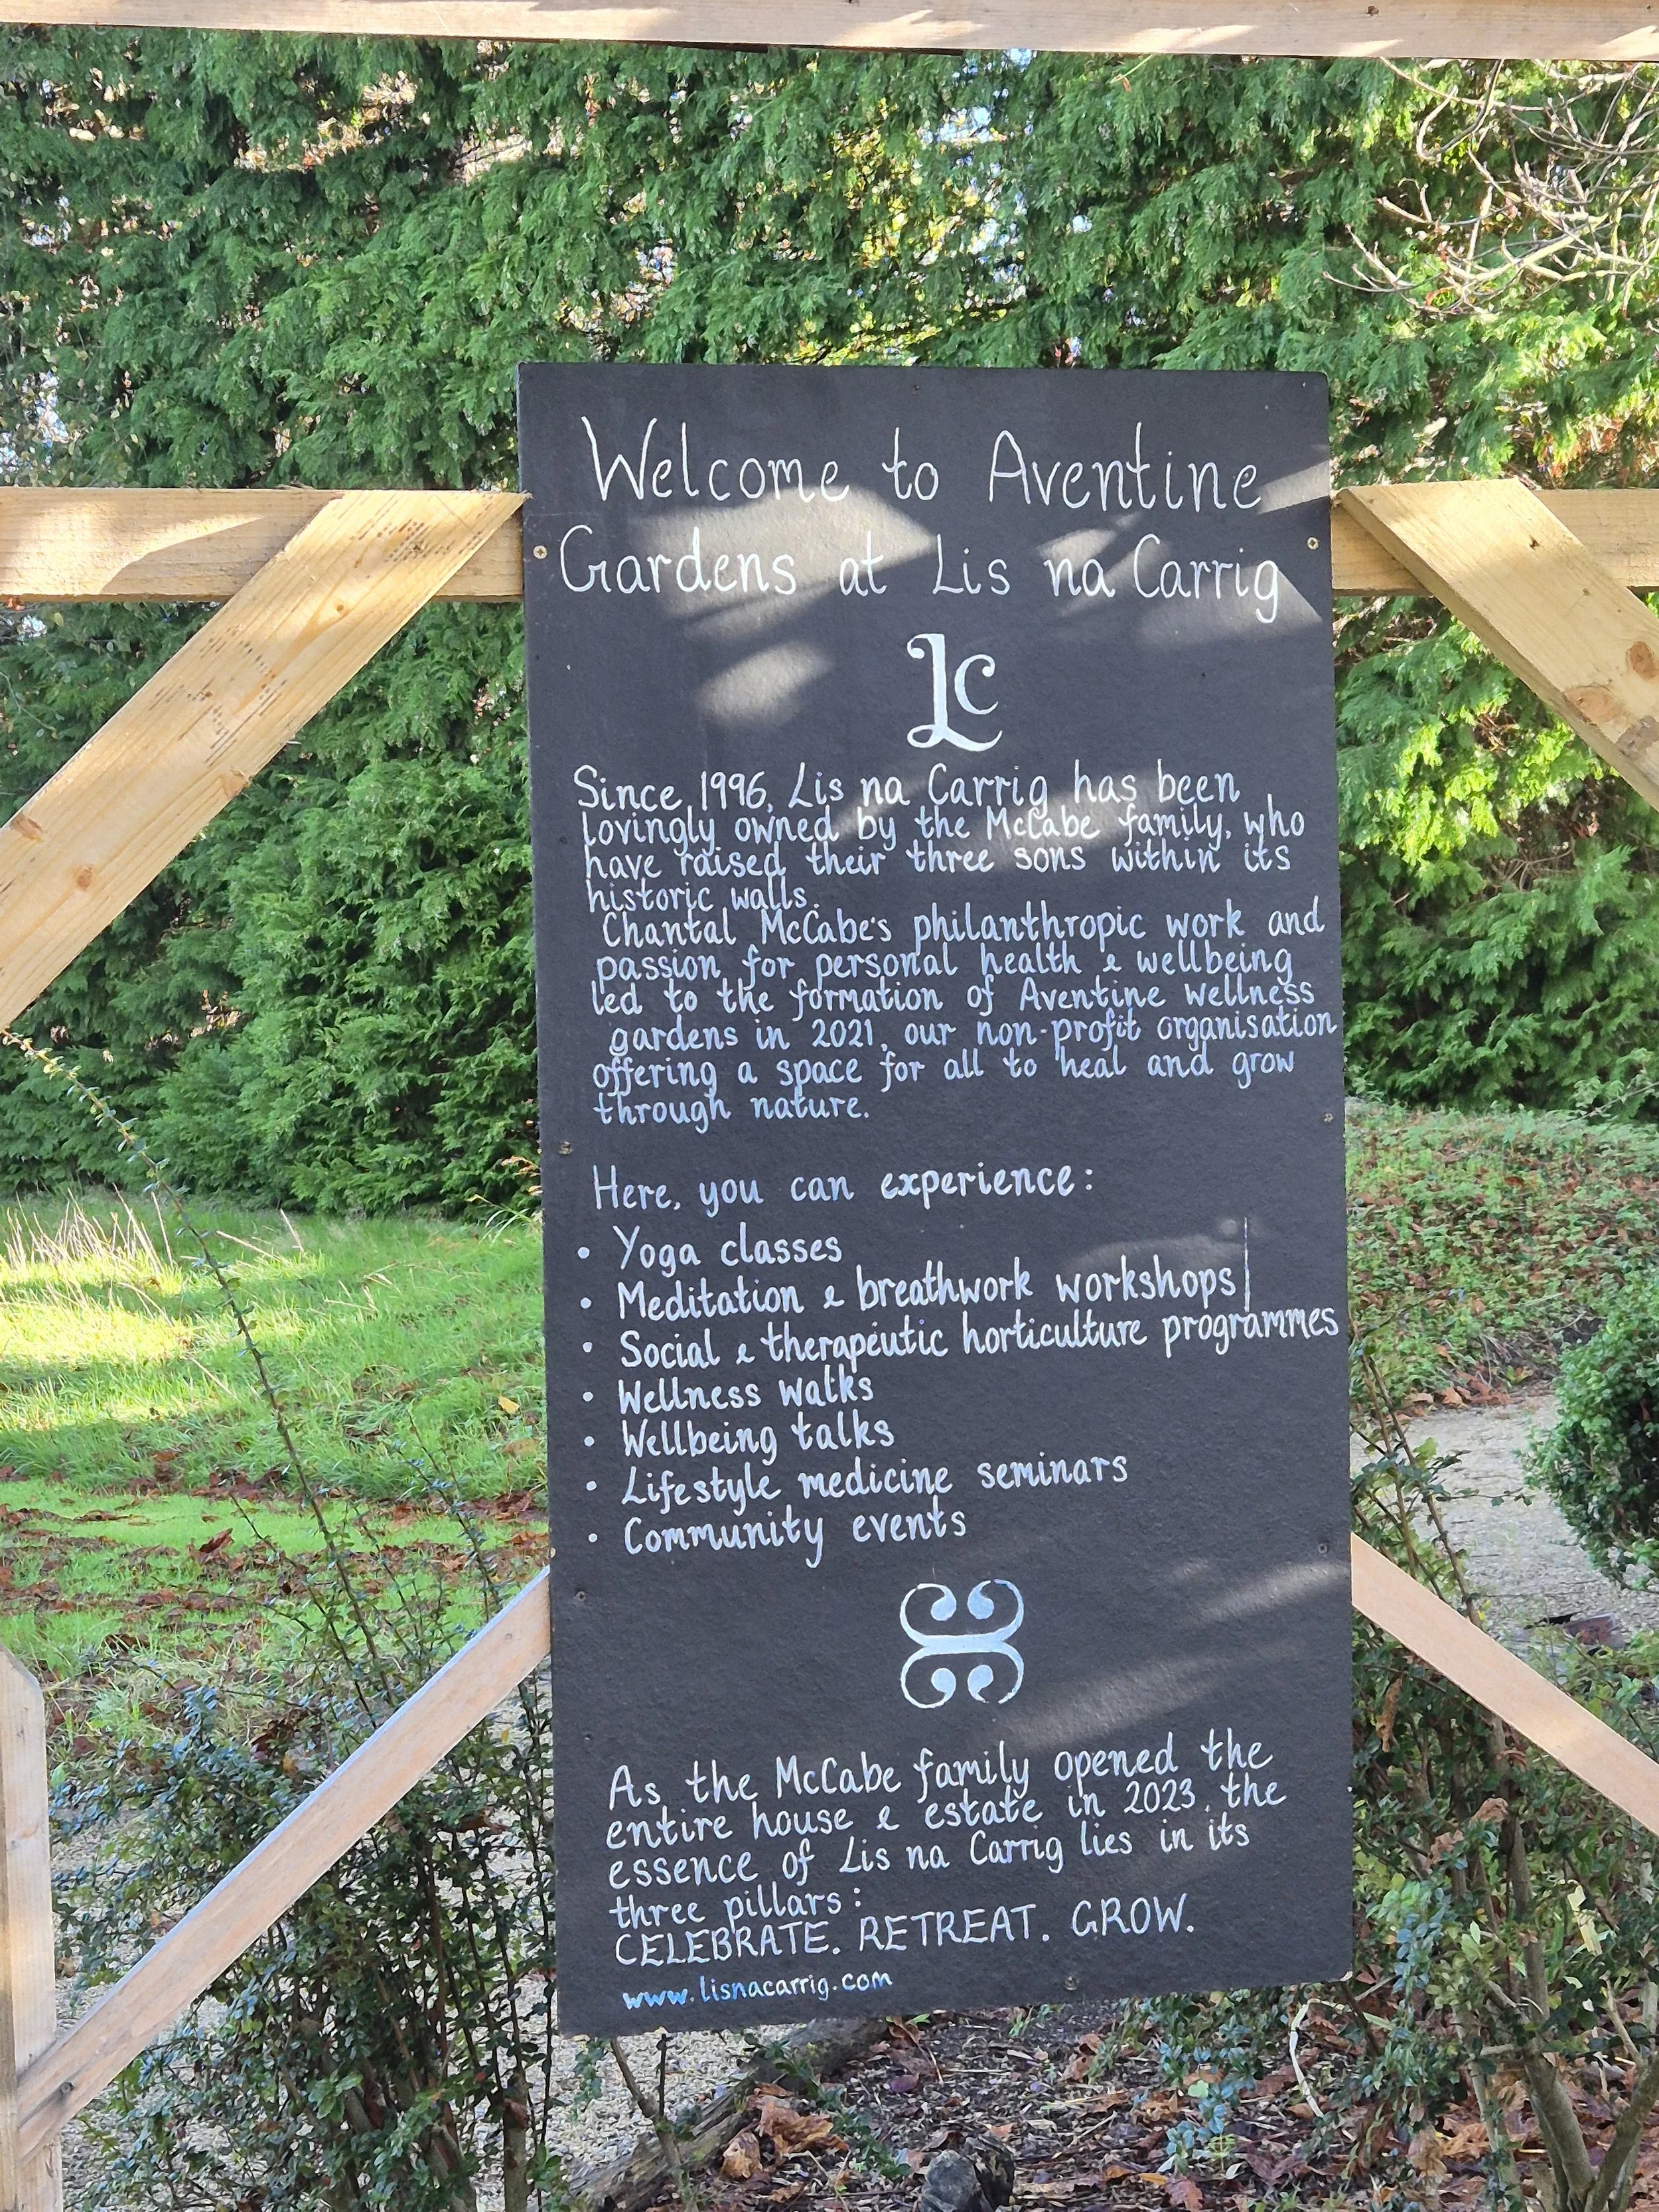 Welcome to Aventine
Gardens at Lis na Carrig
Lc
Since 1996, Lis na Carrig has been
lovingly owned by the McCabe family, who
have raised their three sons within its
historic walls.
Chantal McCabe's philanthropic work and
passion for personal health & wellbeing
led to the formation of Aventine wellness
gardens in 2021, our non-profit organisation
offering a space for all to heal and grow
through nature.
Here, you can experience:
• Yoga classes
• Meditation & breathwork workshops
• Social & therapeutic horticulture programmes
• Wellness walks
• Wellbeing talks
• Lifestyle medicine seminars
• Community events
As the McCabe family opened the
entire house & estate in 2023, the
essence of Lis na Carrig lies in its
three pillars:
CELEBRATE. RETREAT. GROW.
www.lisnacarrig.com